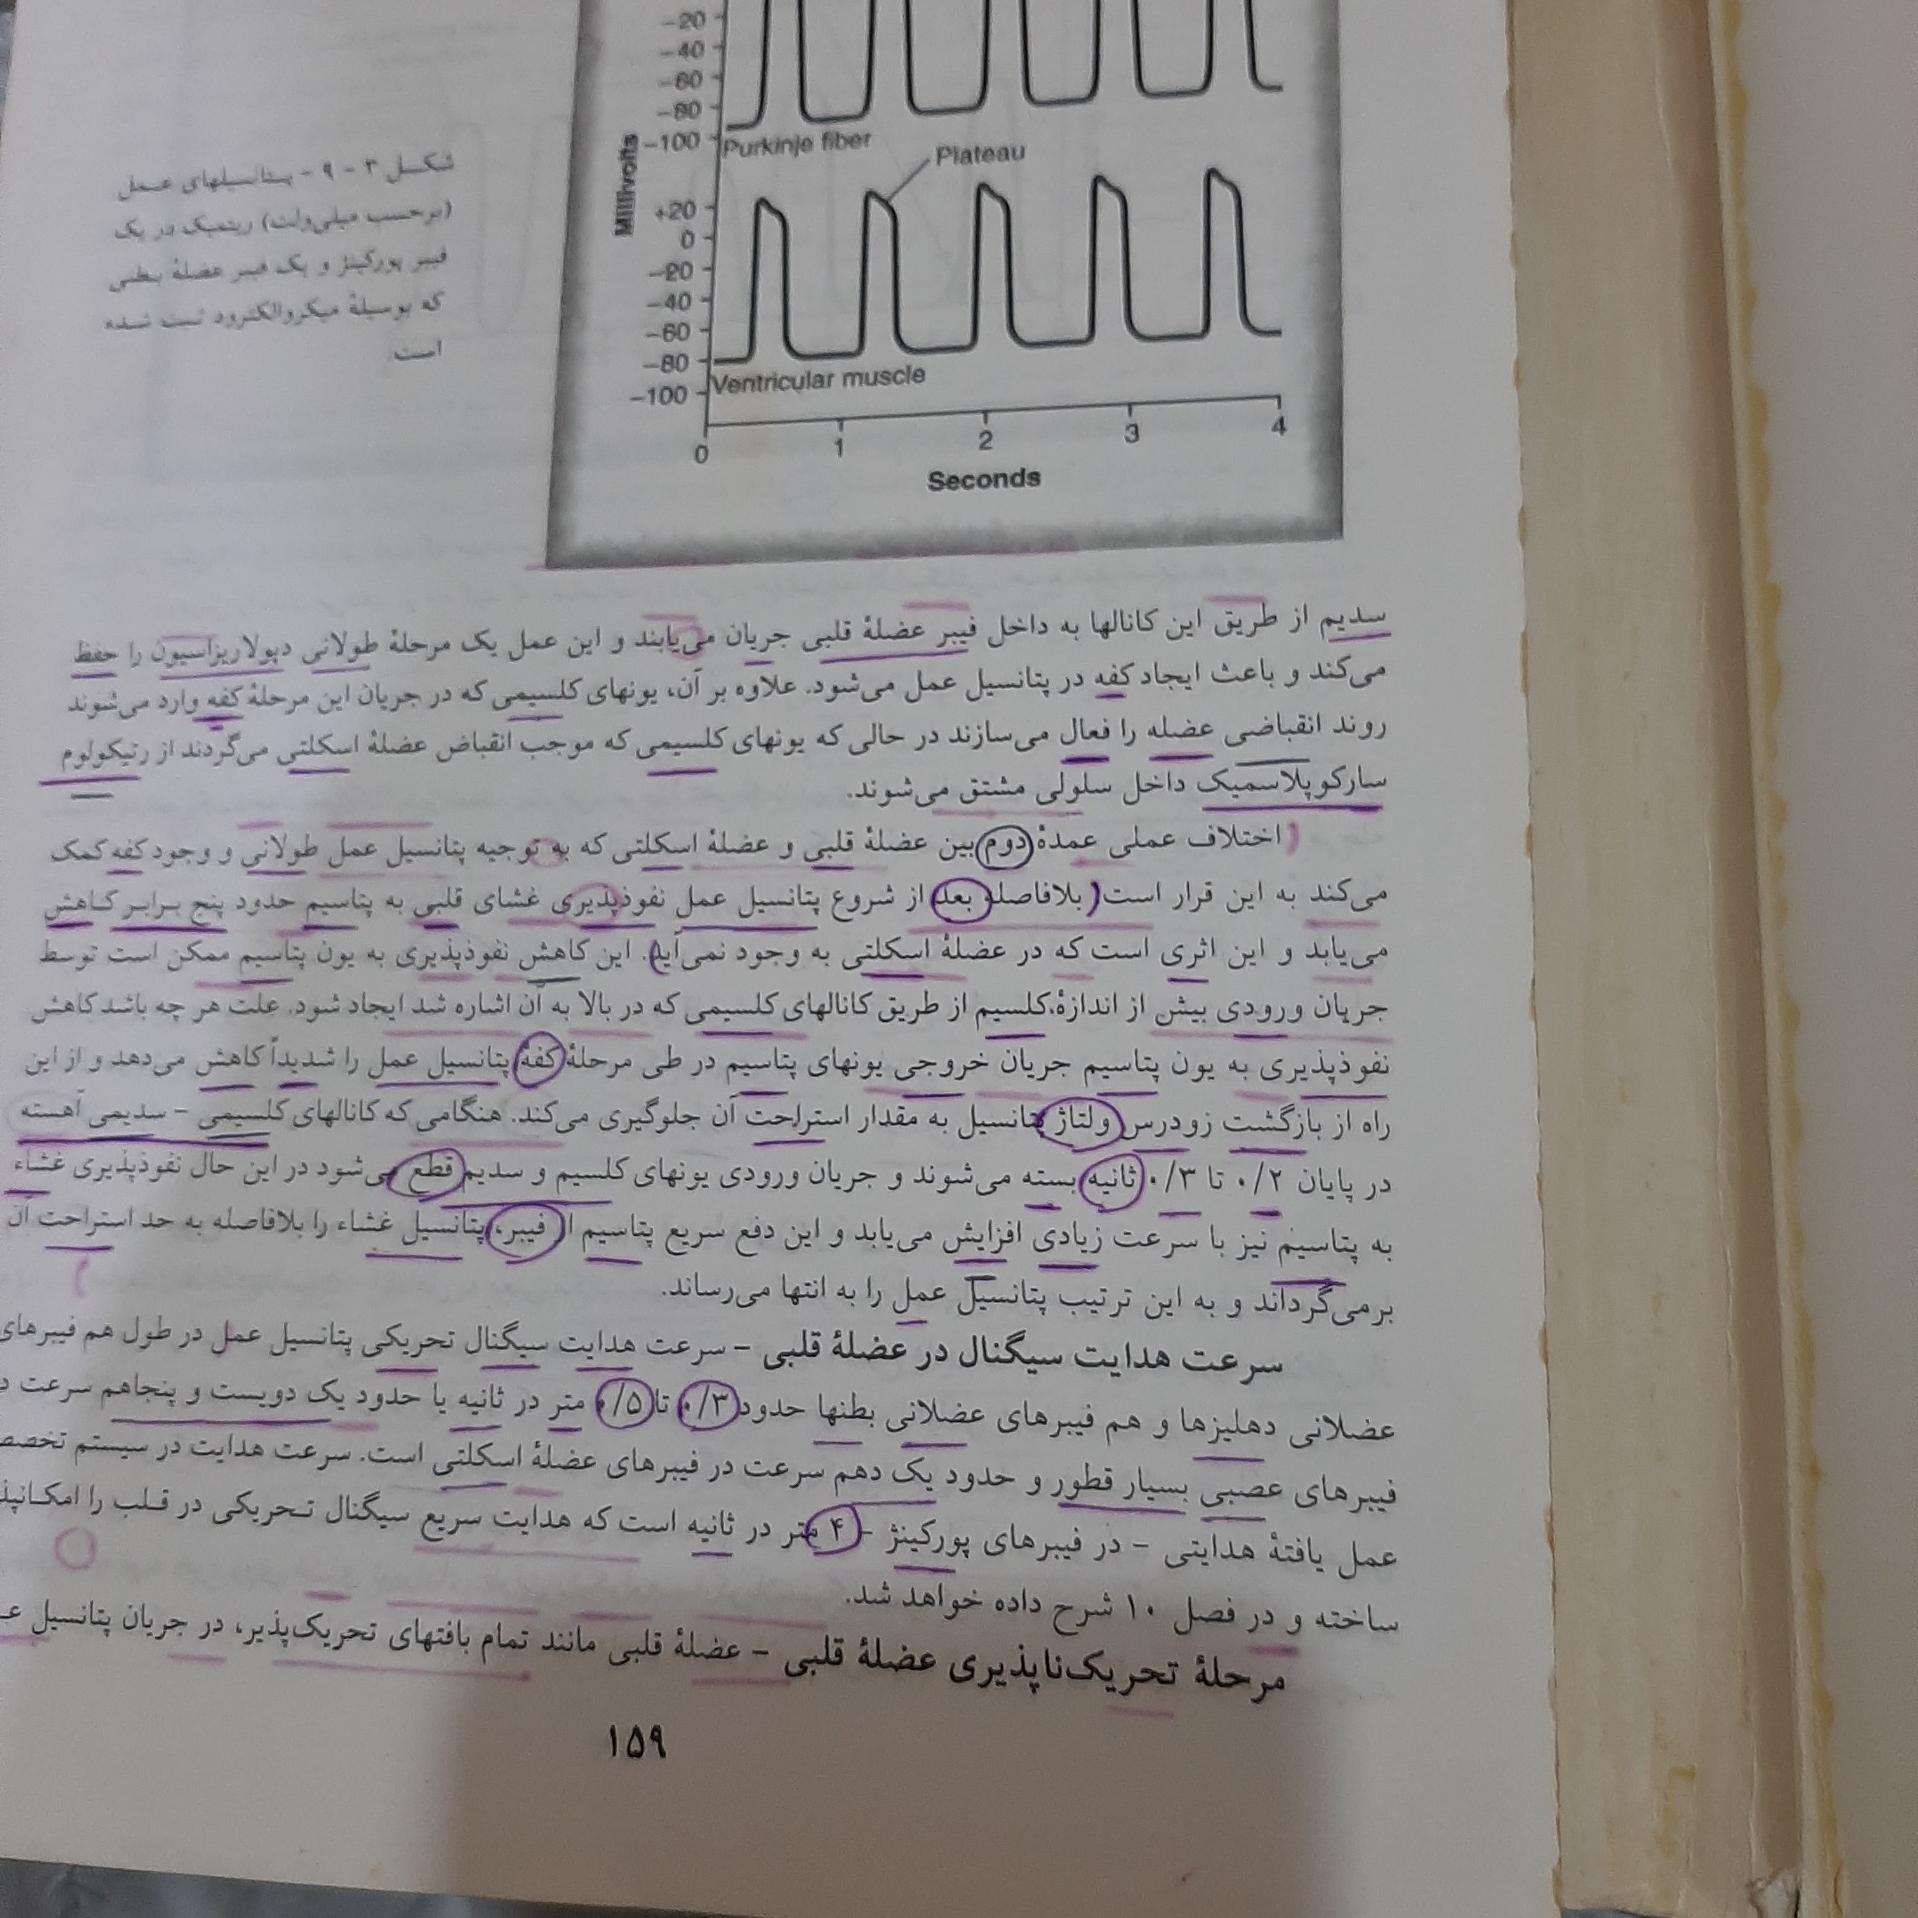 -20
-40
-60
-80
-100
Purkinje fiber
Plateau
Millivolts
+20
0
-20
-40
-60
-80
-100
Ventricular muscle
0 1 2 3 4
Seconds
شکل ۳ - ۹ - پتانسیلهای عمل
(برحسب میلی‌ولت) ریتمیک در یک
فیبر پورکینژ و یک فیبر عضلهٔ بطنی
که بوسیلهٔ میکروالکترود ثبت شده
است.
سدیم از طریق این کانالها به داخل فیبر عضلهٔ قلبی جریان می‌یابند و این عمل یک مرحلهٔ طولانی دپولاریزاسیون را حفظ
می‌کند و باعث ایجاد کفه در پتانسیل عمل می‌شود. علاوه بر آن، یونهای کلسیمی که در جریان این مرحلهٔ کفه وارد می‌شوند
روند انقباضی عضله را فعال می‌سازند در حالی که یونهای کلسیمی که موجب انقباض عضلهٔ اسکلتی می‌گردند از رتیکولوم
سارکوپلاسمیک داخل سلولی مشتق می‌شوند.
اختلاف عملی عمدهٔ دوم بین عضلهٔ قلبی و عضلهٔ اسکلتی که به توجیه پتانسیل عمل طولانی و وجود کفه کمک
می‌کند به این قرار است: بلافاصله بعد از شروع پتانسیل عمل نفوذپذیری غشای قلبی به پتاسیم حدود پنج برابر کاهش
می‌یابد و این اثری است که در عضلهٔ اسکلتی به وجود نمی‌آید. این کاهش نفوذپذیری به یون پتاسیم ممکن است توسط
جریان ورودی بیش از اندازهٔ کلسیم از طریق کانالهای کلسیمی که در بالا به آن اشاره شد ایجاد شود. علت هر چه باشد کاهش
نفوذپذیری به یون پتاسیم جریان خروجی یونهای پتاسیم در طی مرحلهٔ کفهٔ پتانسیل عمل را شدیداً کاهش می‌دهد و از این
راه از بازگشت زودرس ولتاژ پتانسیل به مقدار استراحت آن جلوگیری می‌کند. هنگامی که کانالهای کلسیمی - سدیمی آهسته
در پایان ۰/۲ تا ۰/۳ ثانیه بسته می‌شوند و جریان ورودی یونهای کلسیم و سدیم قطع می‌شود در این حال نفوذپذیری غشاء
به پتاسیم نیز با سرعت زیادی افزایش می‌یابد و این دفع سریع پتاسیم از فیبر، پتانسیل غشاء را بلافاصله به حد استراحت آن
برمی‌گرداند و به این ترتیب پتانسیل عمل را به انتها می‌رساند.
سرعت هدایت سیگنال در عضلهٔ قلبی - سرعت هدایت سیگنال تحریکی پتانسیل عمل در طول هم فیبرهای
عضلانی دهلیزها و هم فیبرهای عضلانی بطنها حدود ۰/۳ تا ۰/۵ متر در ثانیه یا حدود یک دویست و پنجاهم سرعت
فیبرهای عصبی بسیار قطور و حدود یک دهم سرعت در فیبرهای عضلهٔ اسکلتی است. سرعت هدایت در سیستم
عمل یافتهٔ هدایتی - در فیبرهای پورکینژ - ۴ متر در ثانیه است که هدایت سریع سیگنال تحریکی در قلب را
ساخته و در فصل ۱۰ شرح داده خواهد شد.
مرحلهٔ تحریک‌ناپذیری عضلهٔ قلبی - عضلهٔ قلبی مانند تمام بافتهای تحریک‌پذیر، در جریان پتانسیل
۱۵۹